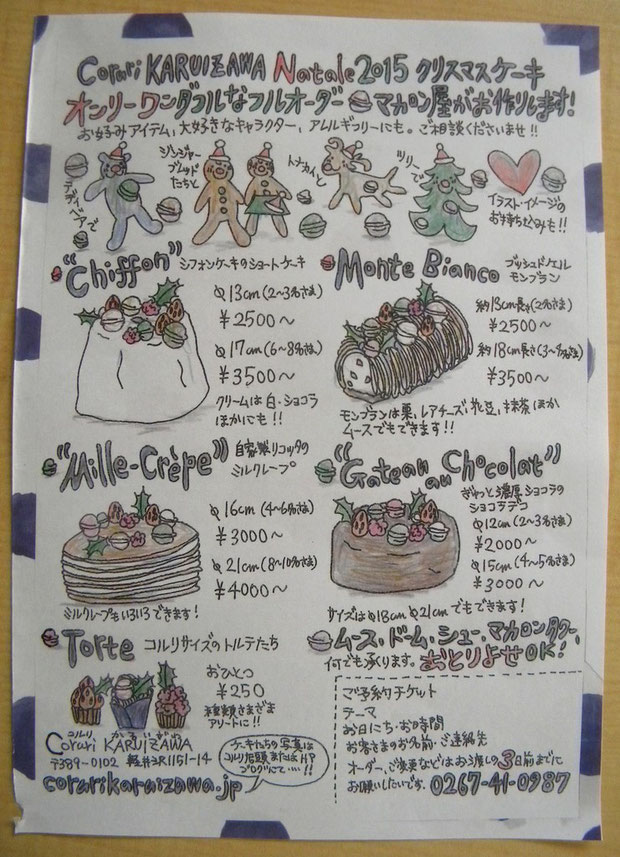 Coruri KARUIZAWA Natale2015 クリスマスケーキ
オンリーワンダフルなフルオーダー マカロン屋がお作りします!
お好みアイテム、大好きなキャラクター、アムルギフリーにも。ご相談くださいませ!!
テディベアで
ジンジャーブレッドたちと
トナカイと
ツリーで
イラスト・イメージの
お持ち込みも!!
"Chiffon" シフォンケーキのショートケーキ
φ13cm(2〜3名さま)
¥2500〜
φ17cm(6〜8名さま)
¥3500〜
クリームは白・ショコラ
ほかにも!!
Monte Bianco ブッシュドノエル
モンブラン
約13cm長さ(2名さま)
¥2500〜
約18cm長さ(3〜4名さま)
¥3500〜
モンブランは栗、レアチーズ、花豆、抹茶ほか
ムースでもできます!!
"Mille-Crèpe" 自家製リコッタの
ミルクレープ
φ16cm(4〜6名さま)
¥3000〜
φ21cm(8〜10名さま)
¥4000〜
ミルクレープもいろいろできます!
"Gateau au Chocolat"
ぎゅっと濃厚ショコラの
ショコラデコ
φ12cm(2〜3名さま)
¥2000〜
φ15cm(4〜5名さま)
¥3000〜
サイズはφ18cm φ21cmでもできます!
Torte コルリサイズのトルテたち
おひとつ
¥250
種類さまざま
アソートに!!
ムース、ドーム、シュー、マカロンタワー、
何でも承ります。おとりよせOK!
コルリ かるいざわ
Coruri KARUIZAWA
〒389-0102 軽井沢1151-14
corurikaruizawa.jp
ケーキたちの写真は
コルリ店頭またはHP
ブログにて…!!
ご予約チケット
テーマ
お日にち・お時間
お客さまのお名前・ご連絡先
オーダー、ご変更などはお渡し3日前までに
お願いしたいです。0267-41-0987